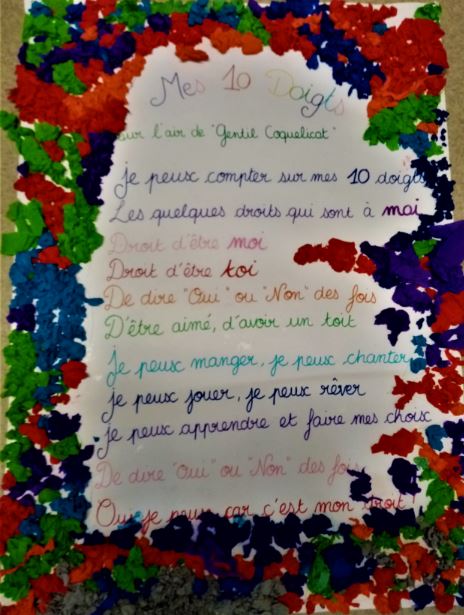 Mes 10 Doigts
sur l'air de "Gentil Coquelicot"
je peux compter sur mes 10 doigts
Les quelques droits qui sont à moi
Droit d'être moi
Droit d'être toi
De dire "Oui" ou "Non" des fois
D'être aimé, d'avoir un toit
je peux manger, je peux chanter
je peux jouer, je peux rêver
je peux apprendre et faire mes choix
De dire "Oui" ou "Non" des fois
Oui je peux car c'est mon droit !